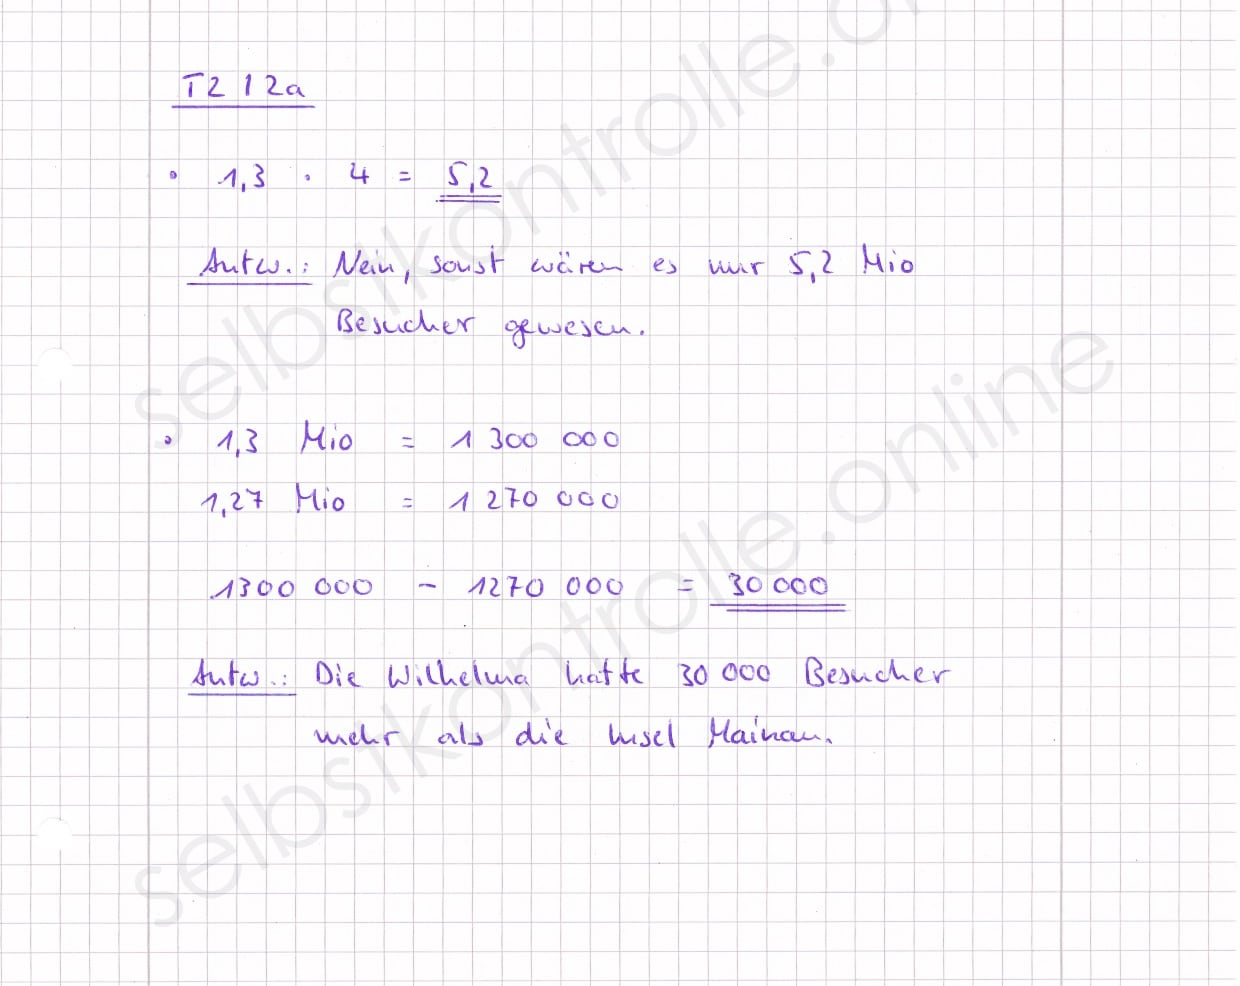 T2 12a
• 1,3 · 4 = 5,2
Antw.: Nein, sonst wären es nur 5,2 Mio
Besucher gewesen.
• 1,3 Mio = 1 300 000
1,27 Mio = 1 270 000
1300 000 - 1270 000 = 30 000
Antw.: Die Wilhelma hatte 30 000 Besucher
mehr als die Insel Mainau.
selbstkontrolle.online
selbstkontrolle.online